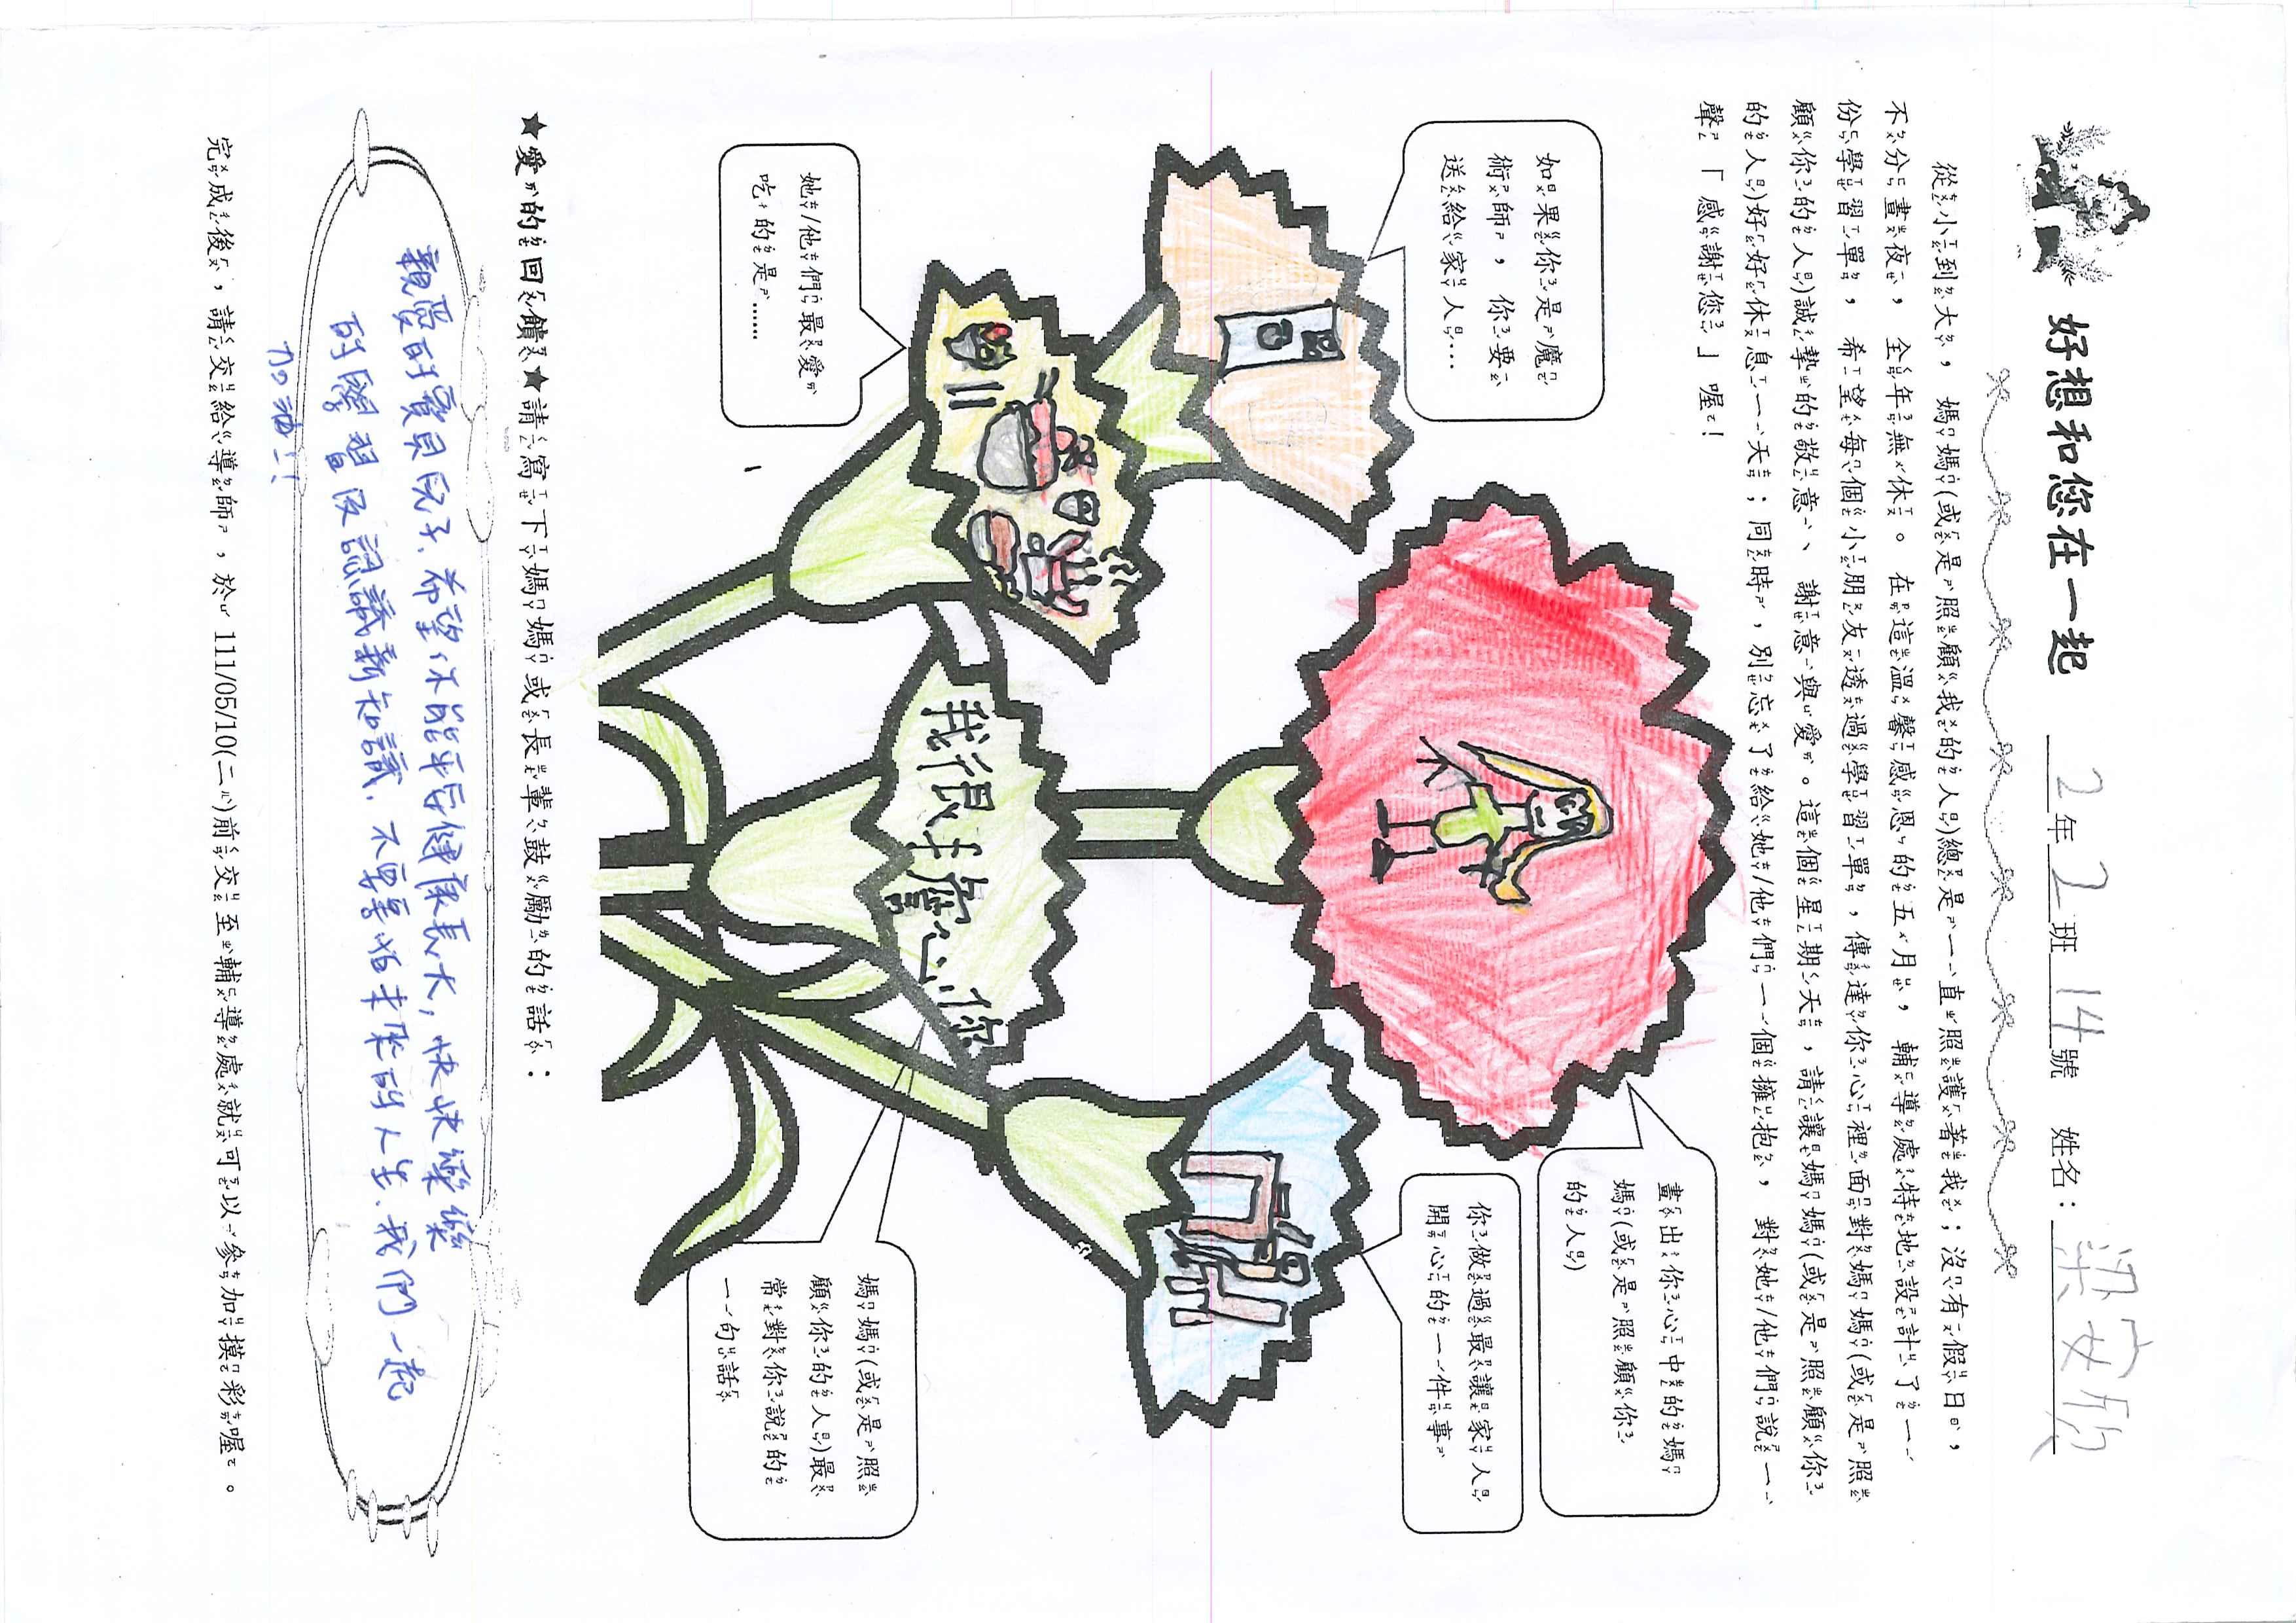 好想和您在一起 2年2班14號 姓名：梁安欣
從小到大，媽媽(或是照顧我的人)總是一直照護著我；沒有假日，
不分晝夜，全年無休。在這溫馨感恩的五月，輔導處特地設計了一
份學習單，希望每個小朋友透過學習單，傳達你心裡面對媽媽(或是照
顧你的人)誠摯的敬意、謝意與愛。這個星期天，請讓媽媽(或是照顧你
的人)好好休息一天；同時，別忘了給她/他們一個擁抱，對她/他們說一
聲「感謝您」喔！
如果你是魔
術師，你要
送給家人…
畫出你心中的媽
媽(或是照顧你
的人)
你做過最讓家人
開心的一件事
她/他們最愛
吃的是……
我很擔心你
媽媽(或是照
顧你的人)最
常對你說的
一句話
★愛的回饋★請寫下媽媽或長輩鼓勵的話：
親愛的寶貝兒子、希望你能平安健康長大，快快樂樂
的學習及認識新知識，不要怕未來的人生、我們一起
加油！！
完成後，請交給導師，於 111/05/10(二)前交至輔導處就可以參加摸彩喔。